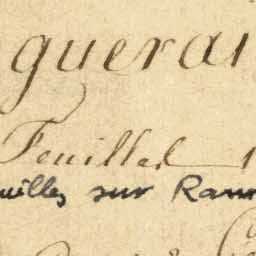 guerai
Feuilled 1
uilles sur Ram